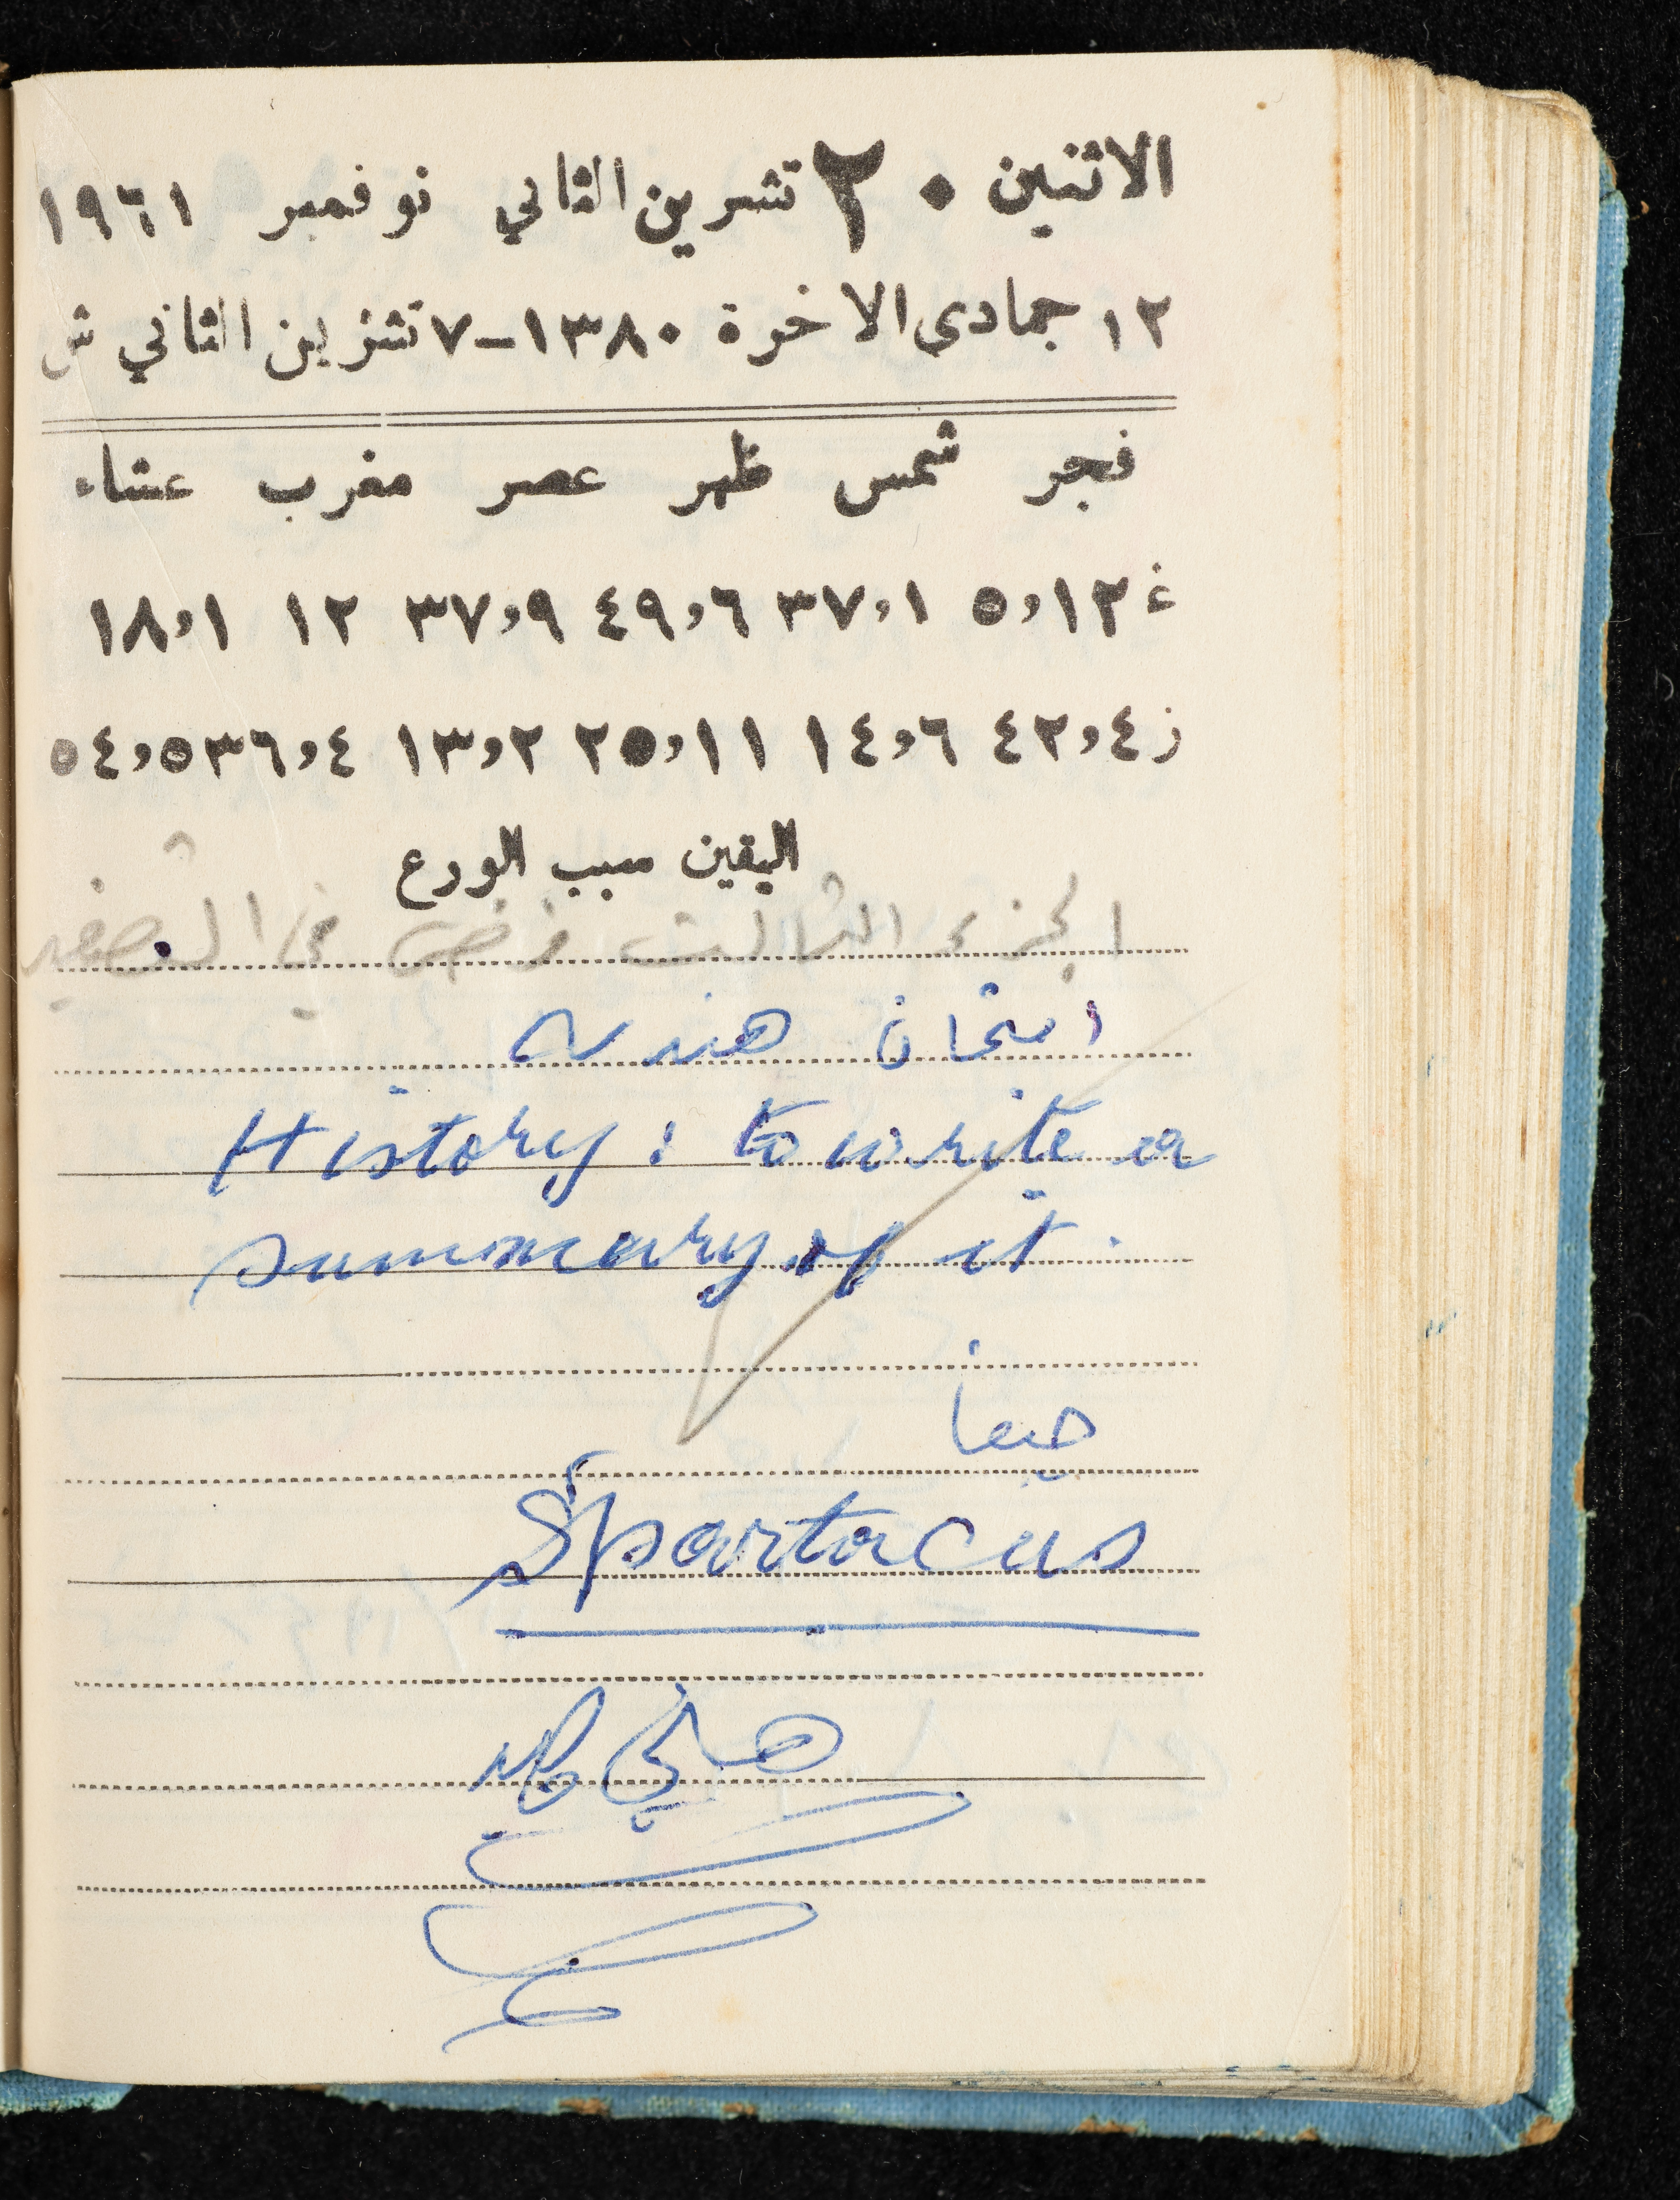 الاثنين ٢٠ تشرين الثاني نوفمبر ١٩٦١
١٢ جمادى الاخرة ١٣٨٠-٧ تشرين الثاني ش
فجر شمس ظهر عصر مغرب عشاء
غ ١٢،٥ ١،٣٧ ٦،٤٩ ٩،٣٧ ١٢ ١،١٨
ز ٤،٤٢ ٦،١٤ ١١،٢٥ ٢،١٣ ٤،٣٦ ٥،٥٤
اليقين سبب الورع
الجزء الثالث فرض في الصفير
امتحان هندسة
History : to write a
summary of it .
Spartacus
هاني